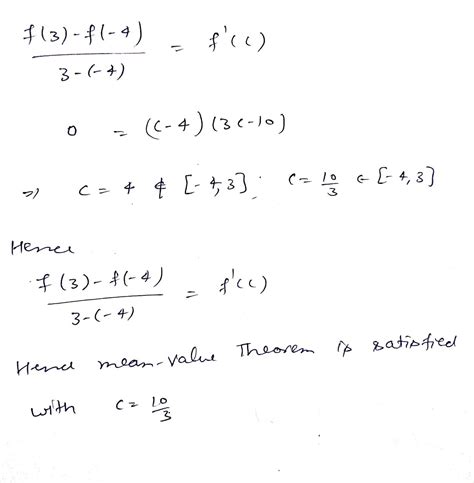 f(3)-f(-4) / 3-(-4) = f'(c)
0 = (c-4)(3c-10)
⇒ c = 4 ∉ [-4,3]; c = 10/3 ∈ [-4,3]
Hence
f(3)-f(-4) / 3-(-4) = f'(c)
Hence mean-value Theorem is satisfied
with c = 10/3